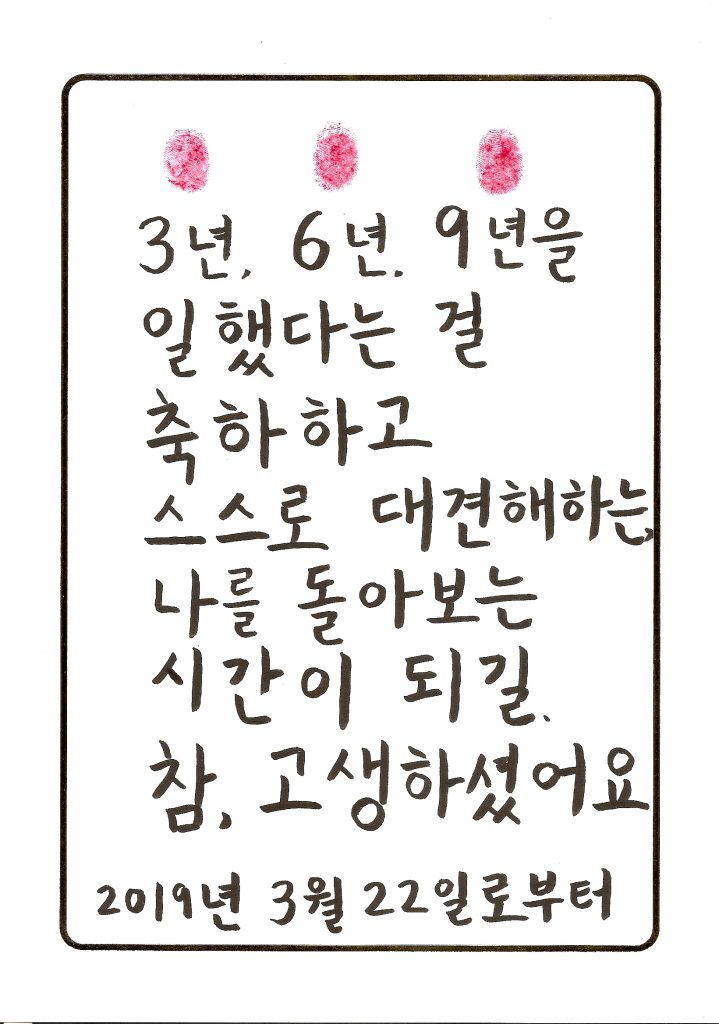 3년, 6년. 9년을
일했다는 걸
축하하고
스스로 대견해하는,
나를 돌아보는
시간이 되길.
참, 고생하셨어요
2019년 3월 22일로부터